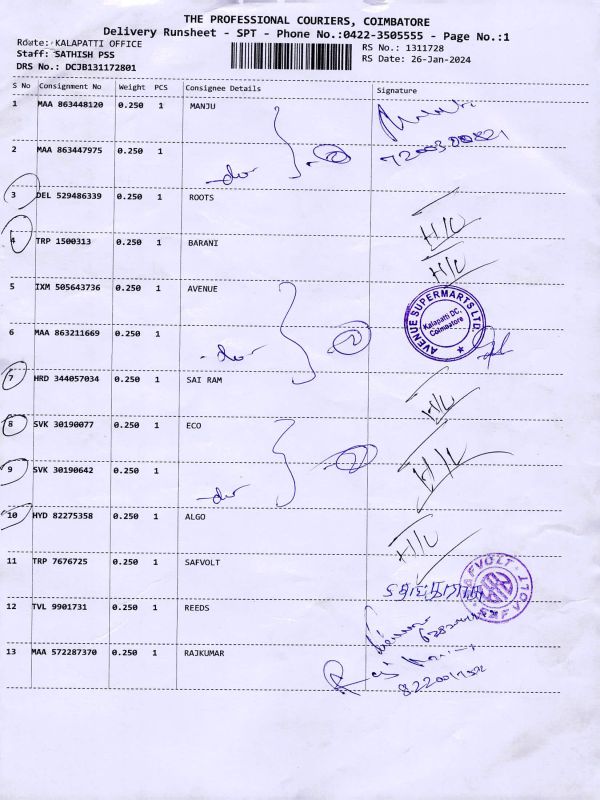 THE PROFESSIONAL COURIERS, COIMBATORE
Delivery Runsheet - SPT - Phone No.:0422-3505555 - Page No.:1
Route: KALAPATTI OFFICE
Staff: SATHISH PSS
DRS No.: DCJB131172801
RS No.: 1311728
RS Date: 26-Jan-2024
S No Consignment No Weight PCS Consignee Details Signature
1 MAA 863448120 0.250 1 MANJU
2 MAA 863447975 0.250 1
3 DEL 529486339 0.250 1 ROOTS H/U
4 TRP 1500313 0.250 1 BARANI H/U
5 IXM 505643736 0.250 1 AVENUE
AVENUE SUPERMARTS LTD.
Kalapatti DC,
Coimbatore
6 MAA 863211669 0.250 1
7 HRD 344057034 0.250 1 SAI RAM H/U
8 SVK 30190077 0.250 1 ECO H/U
9 SVK 30190642 0.250 1
10 HYD 82275358 0.250 1 ALGO H/U
11 TRP 7676725 0.250 1 SAFVOLT
SAFVOLT
12 TVL 9901731 0.250 1 REEDS
13 MAA 572287370 0.250 1 RAJKUMAR